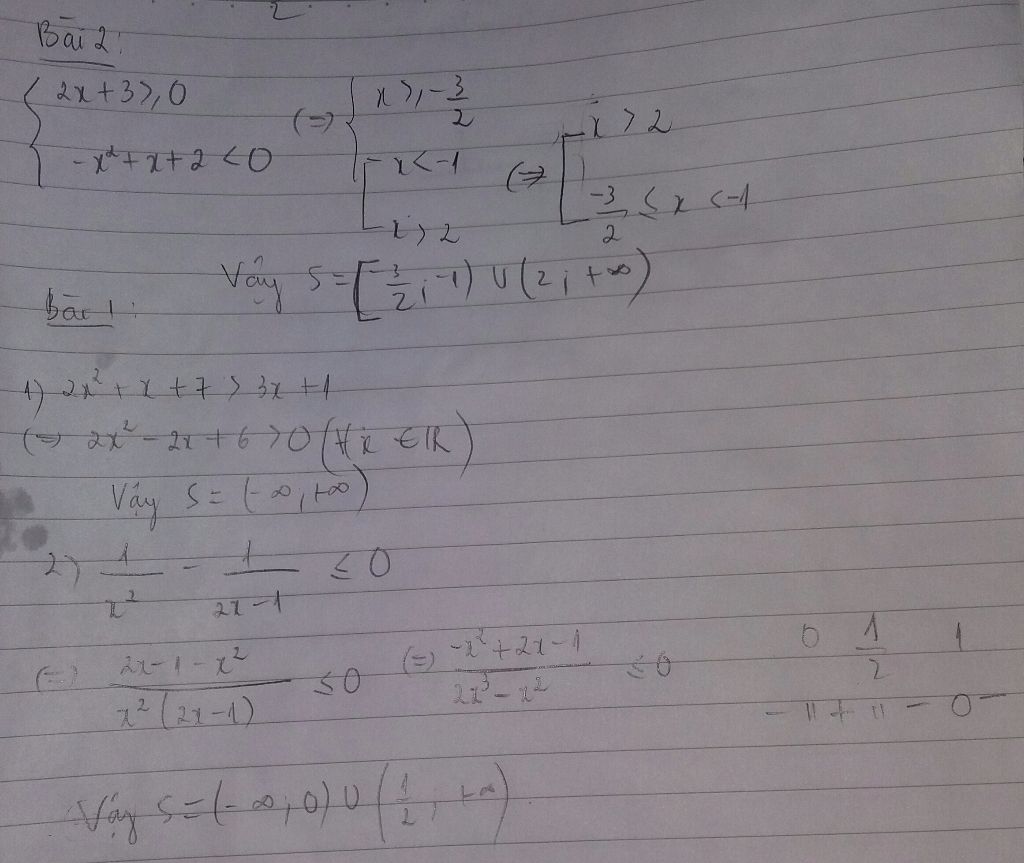 Bài 2:
{ 2x + 3 ≥ 0
-x² + x + 2 < 0
(=) { x ≥ -3/2
[ x < -1
x > 2
(=) [ x > 2
-3/2 ≤ x < -1
Vậy S = [-3/2; -1) ∪ (2; +∞)
Bài 1:
1) 2x² + x + 7 > 3x + 1
(=) 2x² - 2x + 6 > 0 (∀x ∈ ℝ)
Vậy S = (-∞, +∞)
2) 1/x² - 1/(2x-1) ≤ 0
(=) (2x - 1 - x²)/(x²(2x-1)) ≤ 0 (=) (-x² + 2x - 1)/(2x³ - x²) ≤ 0
0 1/2 1
- || + || - 0 -
Vậy S = (-∞; 0) ∪ (1/2; +∞)